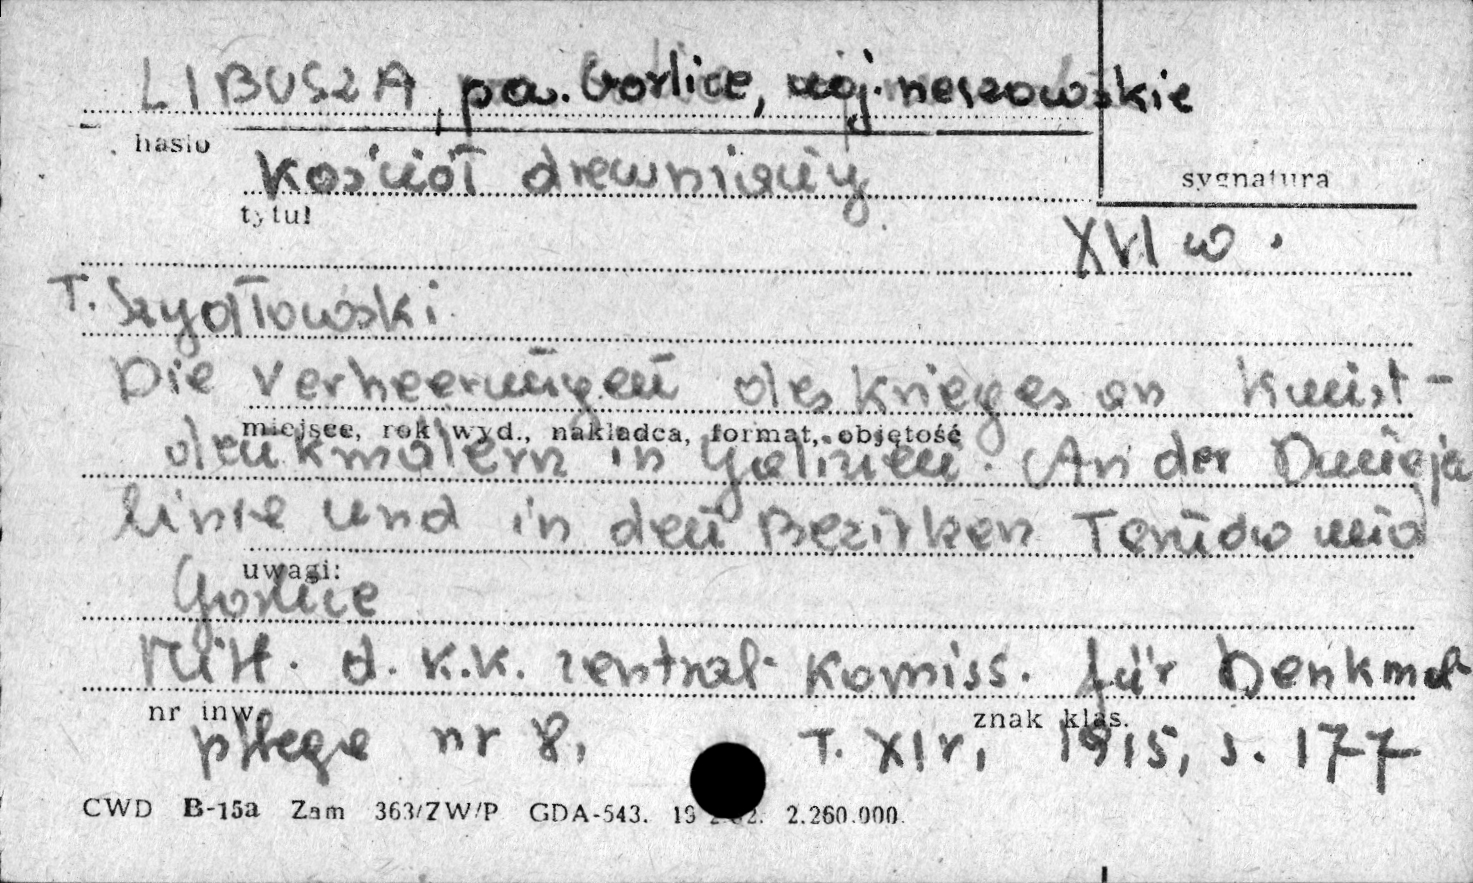 LIBUSZA, pow. Gorlice, woj. rzeszowskie
hasło
sygnatura
Kościół drewniany
tytuł
XVI w.
T. Szydłowski
Die Verheerungen des Krieges an Kunst-
miejsce, rok wyd., nakładca, format, objętość
denkmälern in Galizien. An der Dunaja
linie und in den Bezirken Tarnów und
uwagi:
Gorlice
Mitt. d. K.K. Zentral-Komiss. für Denkmal
nr inw.
znak klas.
pflege nr 8, T. XIV, 1915, s. 177
CWD B-15a Zam 363/ZW/P GDA-543. 2.260.000.